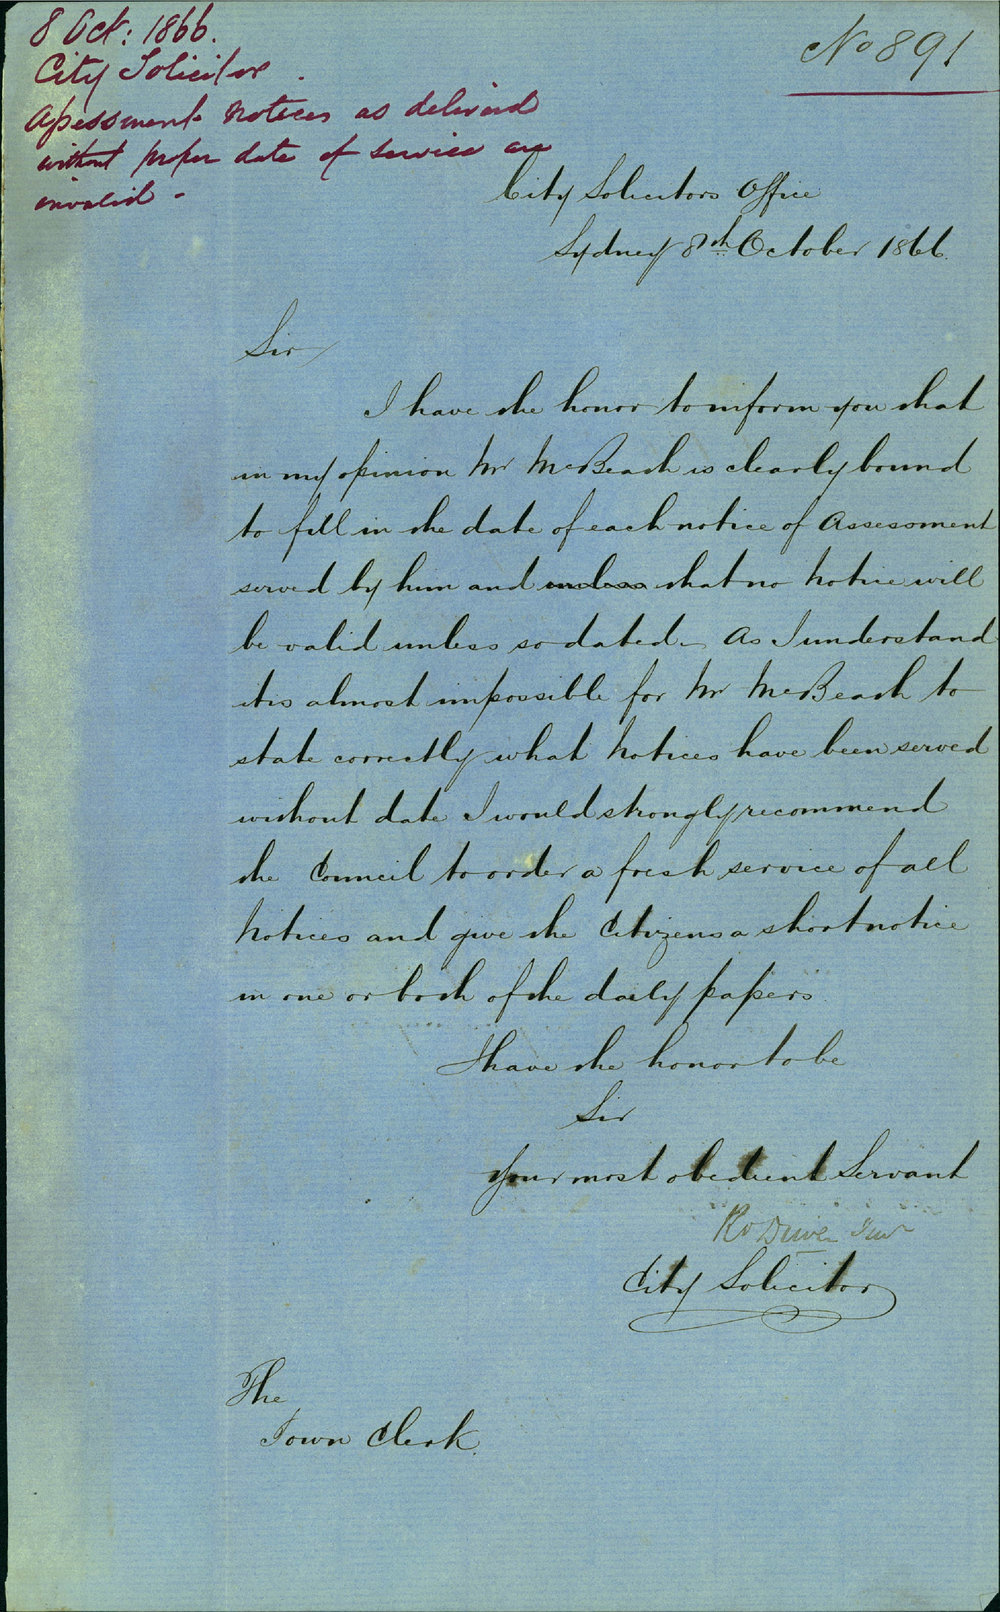 8 Oct: 1866.
City Solicitor.
Assessment Notices as delivered
without proper date of service are
invalid -
No 891
City Solicitors Office
Sydney 8th October 1866.
Sir
I have the honor to inform you that
in my opinion Mr McBeath is clearly bound
to fill in the date of each notice of Assessment
served by him and unless that no Notice will
be valid unless so dated - As I understand
it is almost impossible for Mr McBeath to
state correctly what Notices have been served
without date I would strongly recommend
the Council to order a fresh service of all
Notices and give the Citizens a short notice
in one or both of the daily papers.
I have the honor to be
Sir
Your most obedient Servant
City Solicitor
The
Town Clerk.